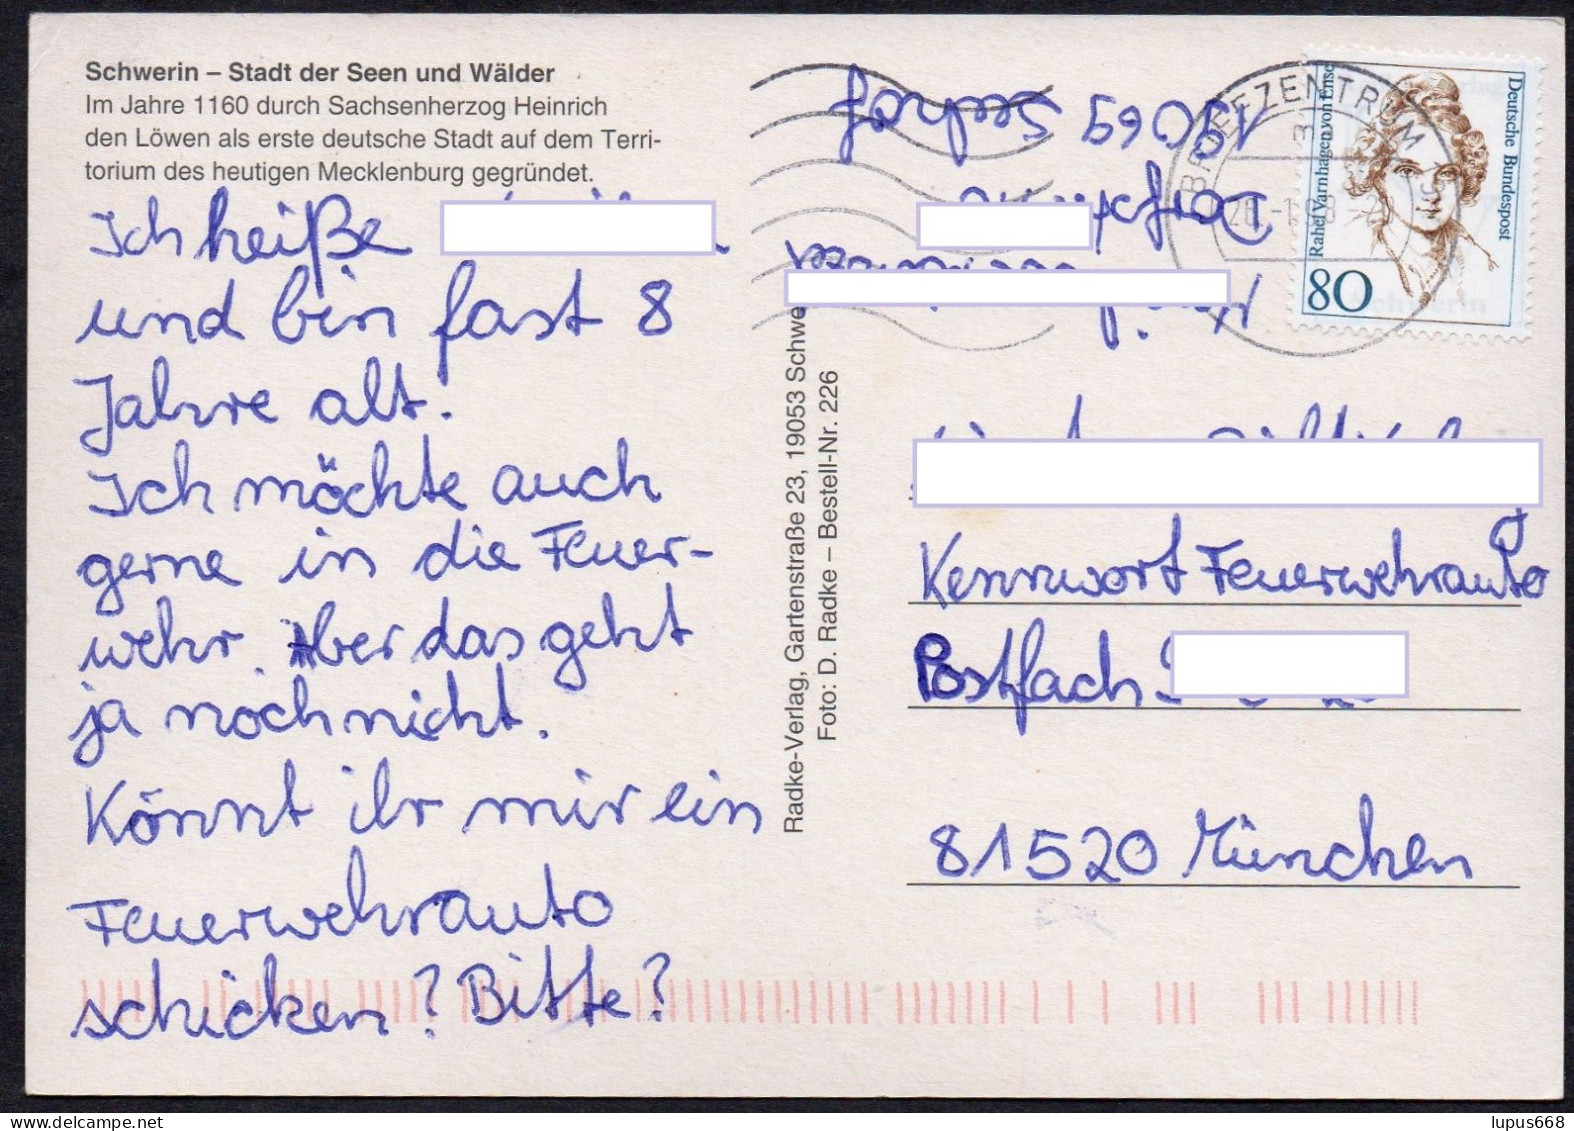 Schwerin – Stadt der Seen und Wälder
Im Jahre 1160 durch Sachsenherzog Heinrich
den Löwen als erste deutsche Stadt auf dem Terri-
torium des heutigen Mecklenburg gegründet.
Ich heiße
und bin fast 8
Jahre alt.
Ich möchte auch
gerne in die Feuer-
wehr. Aber das geht
ja noch nicht.
Könnt ihr mir ein
Feuerwehrauto
schicken? Bitte?
Radke-Verlag, Gartenstraße 23, 19053 Schwe
Foto: D. Radke – Bestell-Nr. 226
Dorfstr
19069 Seehof
BRIEFZENTRUM
Rahel Varnhagen von Ense
Deutsche Bundespost
80
Kennwort Feuerwehrauto
Postfach
81520 München
delcampe.net
lupus668